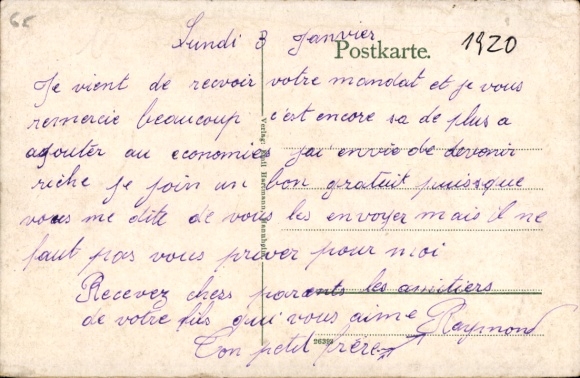 65
Lundi 3 Janvier
Postkarte.
1920
Je vient de recvoir votre mandat et je vous
remercie beaucoup c'est encore sa de plus a
agouter au economies j'ai envie de devenir
riche Je join un bon gratuit puisque
vous me dite de vous les envoyer mais il ne
faut pas vous priver pour moi
Recevez chers parents les amitiers
de votre fils qui vous aime Raymond
Ton petit frère
Verlag: Hartmann, Mannheim
26393